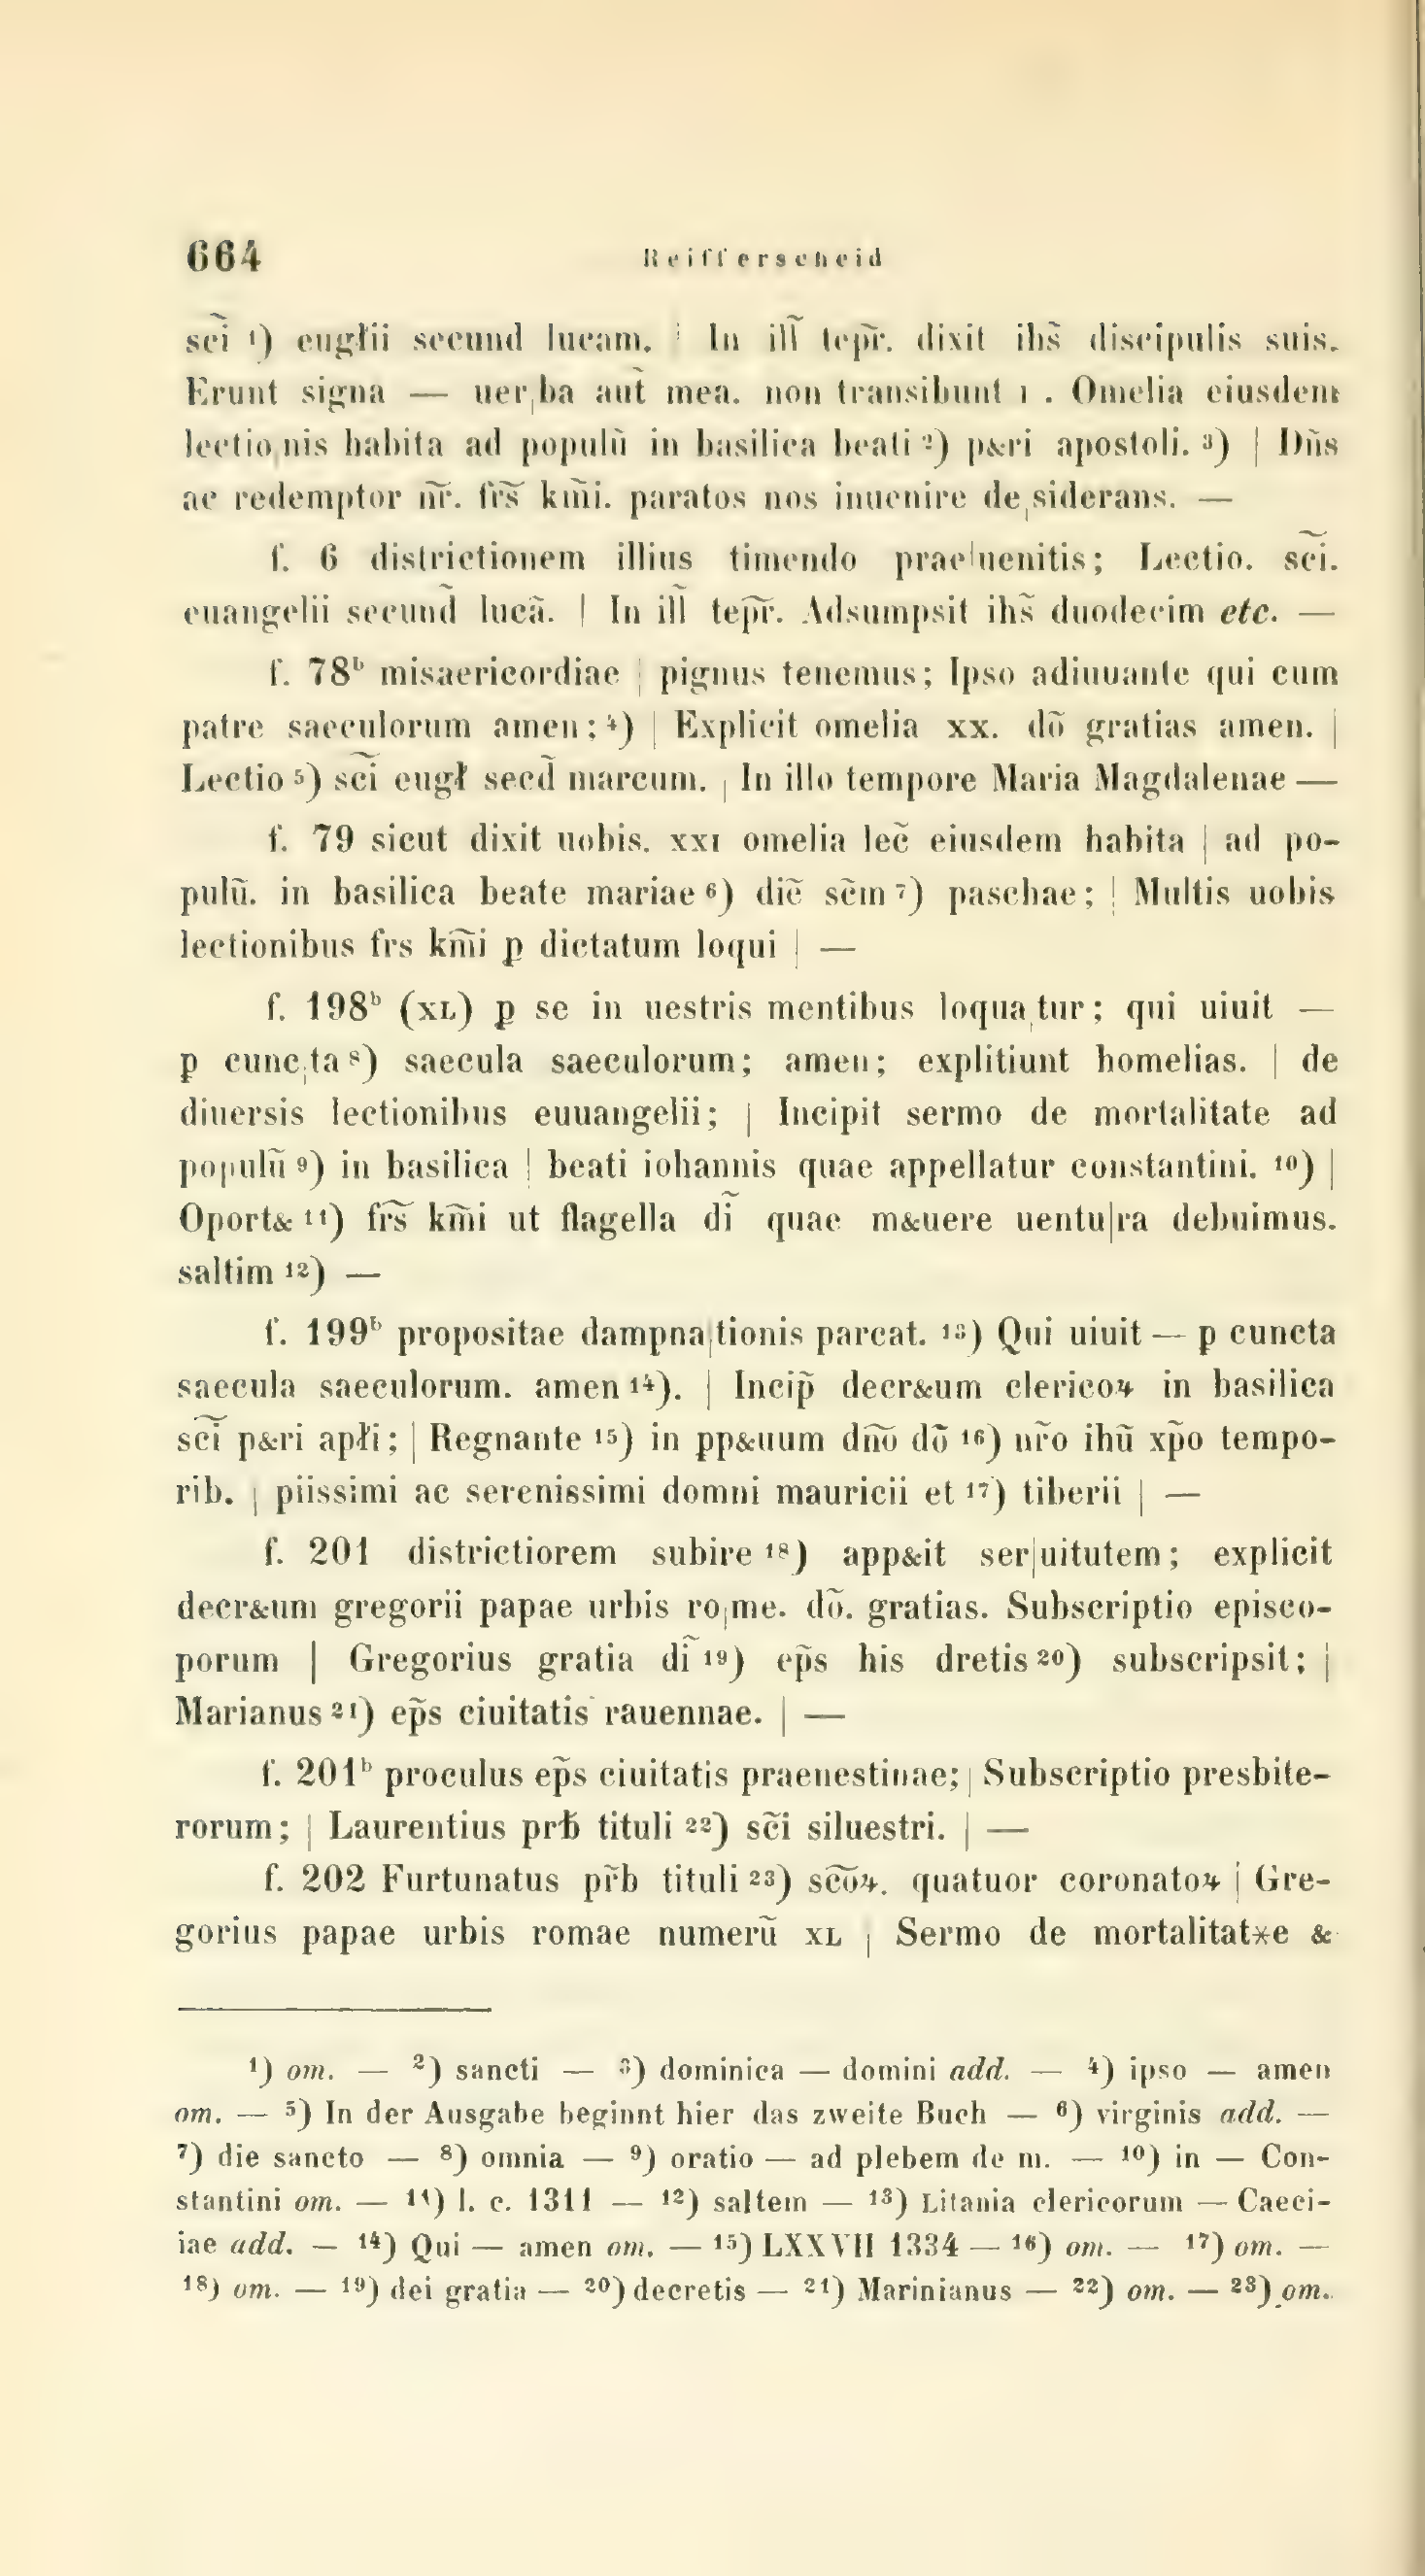 664 Reifferscheid
sc̃i ¹) eugłii secund lucam. | In ill̃ tep̃r. dixit ihs̃ discipulis suis.
Erunt signa — uer|ba aut̃ mea. non transibunt ı . Omelia eiusdem
lectio|nis habita ad populũ in basilica beati ²) p&ri apostoli. ³) | Dñs
ac redemptor ñr. fr̃s km̃i. paratos nos inuenire de|siderans. —
f. 6 districtionem illius timendo prae|uenitis; Lectio. sc̃i.
euangelii secund̃ lucã. | In ill̃ tep̃r. Adsumpsit ihs̃ duodecim etc. —
f. 78ᵇ misaericordiae | pignus tenemus; Ipso adiuuante qui cum
patre saeculorum amen; ⁴) | Explicit omelia xx. dõ gratias amen. |
Lectio ⁵) sc̃i eugł secd̃ marcum. | In illo tempore Maria Magdalenae —
f. 79 sicut dixit uobis. xxı omelia lec̃ eiusdem habita | ad po-
pulũ. in basilica beate mariae ⁶) diẽ sc̃m ⁷) paschae; | Multis uobis
lectionibus frs km̃i ꝑ dictatum loqui | —
f. 198ᵇ (xʟ) ꝑ se in uestris mentibus loqua|tur; qui uiuit —
ꝑ cunc|ta ⁸) saecula saeculorum; amen; explitiunt homelias. | de
diuersis lectionibus euuangelii; | Incipit sermo de mortalitate ad
populũ ⁹) in basilica | beati iohannis quae appellatur constantini. ¹⁰) |
Oport& ¹¹) fr̃s km̃i ut flagella dĩ quae m&uere uentu|ra debuimus.
saltim ¹²) —
f. 199ᵇ propositae dampna|tionis parcat. ¹³) Qui uiuit — p cuncta
saecula saeculorum. amen ¹⁴). | Incip̃ decr&um clericoꝝ in basilica
sc̃i p&ri apłi; | Regnante ¹⁵) in pp&uum dñõ dõ ¹⁶) nr̃o ihũ xp̃o tempo-
rib. | piissimi ac serenissimi domni mauricii et ¹⁷) tiberii | —
f. 201 districtiorem subire ¹⁸) app&it ser|uitutem; explicit
decr&um gregorii papae urbis ro|me. dõ. gratias. Subscriptio episco-
porum | Gregorius gratia dĩ ¹⁹) ep̃s his dretis ²⁰) subscripsit; |
Marianus ²¹) ep̃s ciuitatis rauennae. | —
f. 201ᵇ proculus ep̃s ciuitatis praenestinae; | Subscriptio presbite-
rorum; | Laurentius prƀ tituli ²²) sc̃i siluestri. | —
f. 202 Furtunatus pr̃b tituli ²³) sc̃õꝝ. quatuor coronatoꝝ | Gre-
gorius papae urbis romae numerũ xʟ | Sermo de mortalitat*e &
¹) om. — ²) sancti — ³) dominica — domini add. — ⁴) ipso — amen
om. — ⁵) In der Ausgabe beginnt hier das zweite Buch — ⁶) virginis add. —
⁷) die sancto — ⁸) omnia — ⁹) oratio — ad plebem de m. — ¹⁰) in — Con-
stantini om. — ¹¹) l. c. 1311 — ¹²) saltem — ¹³) Litania clericorum — Caeci-
iae add. — ¹⁴) Qui — amen om. — ¹⁵) LXXVII 1334 — ¹⁶) om. — ¹⁷) om. —
¹⁸) om. — ¹⁹) dei gratia — ²⁰) decretis — ²¹) Marinianus — ²²) om. — ²³) om.